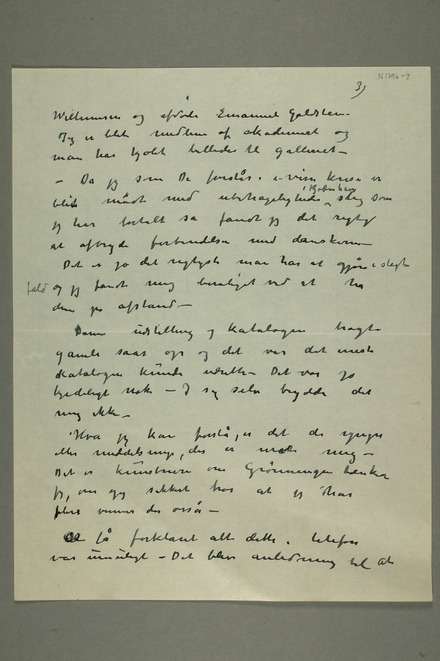 N 1796-3
3)
Willumsen og afdøde Emanuel Goldstein.
Jeg er blit medlem af akademiet og
man har kjøbt billeder til galleriet –
– Da jeg som De forstår i visse kredse er
blit mødt med ubehageligheder i Kjøbenhavn slig som
jeg har fortalt så fandt jeg det rigtig
at afbryde forbindelsen med danskerne
Det er jo det rigtigste man har at gjøre i sligt
fald og jeg fandt mig beroliget ved at ha
dem på afstand –
Denne udstilling og katalogen bragte
gamle saar op og det var det eneste
katalogen kunde udrette – Det var jo
kjedeligt nok – I sig selv brydde det
mig ikke –
Hva jeg kan forstå, er det de yngre
eller middelsunge, der er mode mig –
Det er kunstnerne om Grønningen tænker
jeg, om jeg sikkert tror at jeg har
flere venner der også –
At få forklaret alt dette i telefon
var umuligt – Det blev anledning til at